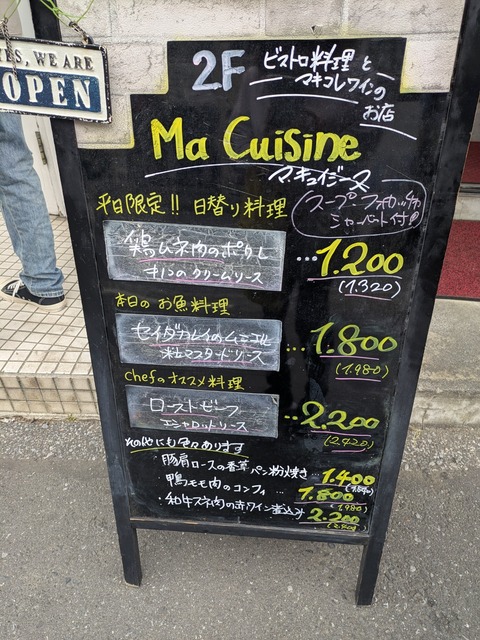 YES, WE ARE
OPEN
2F ビストロ料理と
マキコレワインの
お店
Ma Cuisine
マ・キュイジーヌ
平日限定!! 日替り料理
(スープ・フォカッチャ
シャーベット付!!)
鶏ムネ肉のポワレ
キノコのクリームソース
...1.200
(1.320)
本日のお魚料理
セイダカレイのムニエル
粒マスタードソース
...1.800
(1.980)
chefのオススメ料理
ローストビーフ
エシャロットソース
...2.200
(2.420)
その他にも色々あります
・豚肩ロースの香草パン粉焼き...1.400
・鴨モモ肉のコンフィ...1.800
(1.980)
・和牛スネ肉の赤ワイン煮込み
2.200